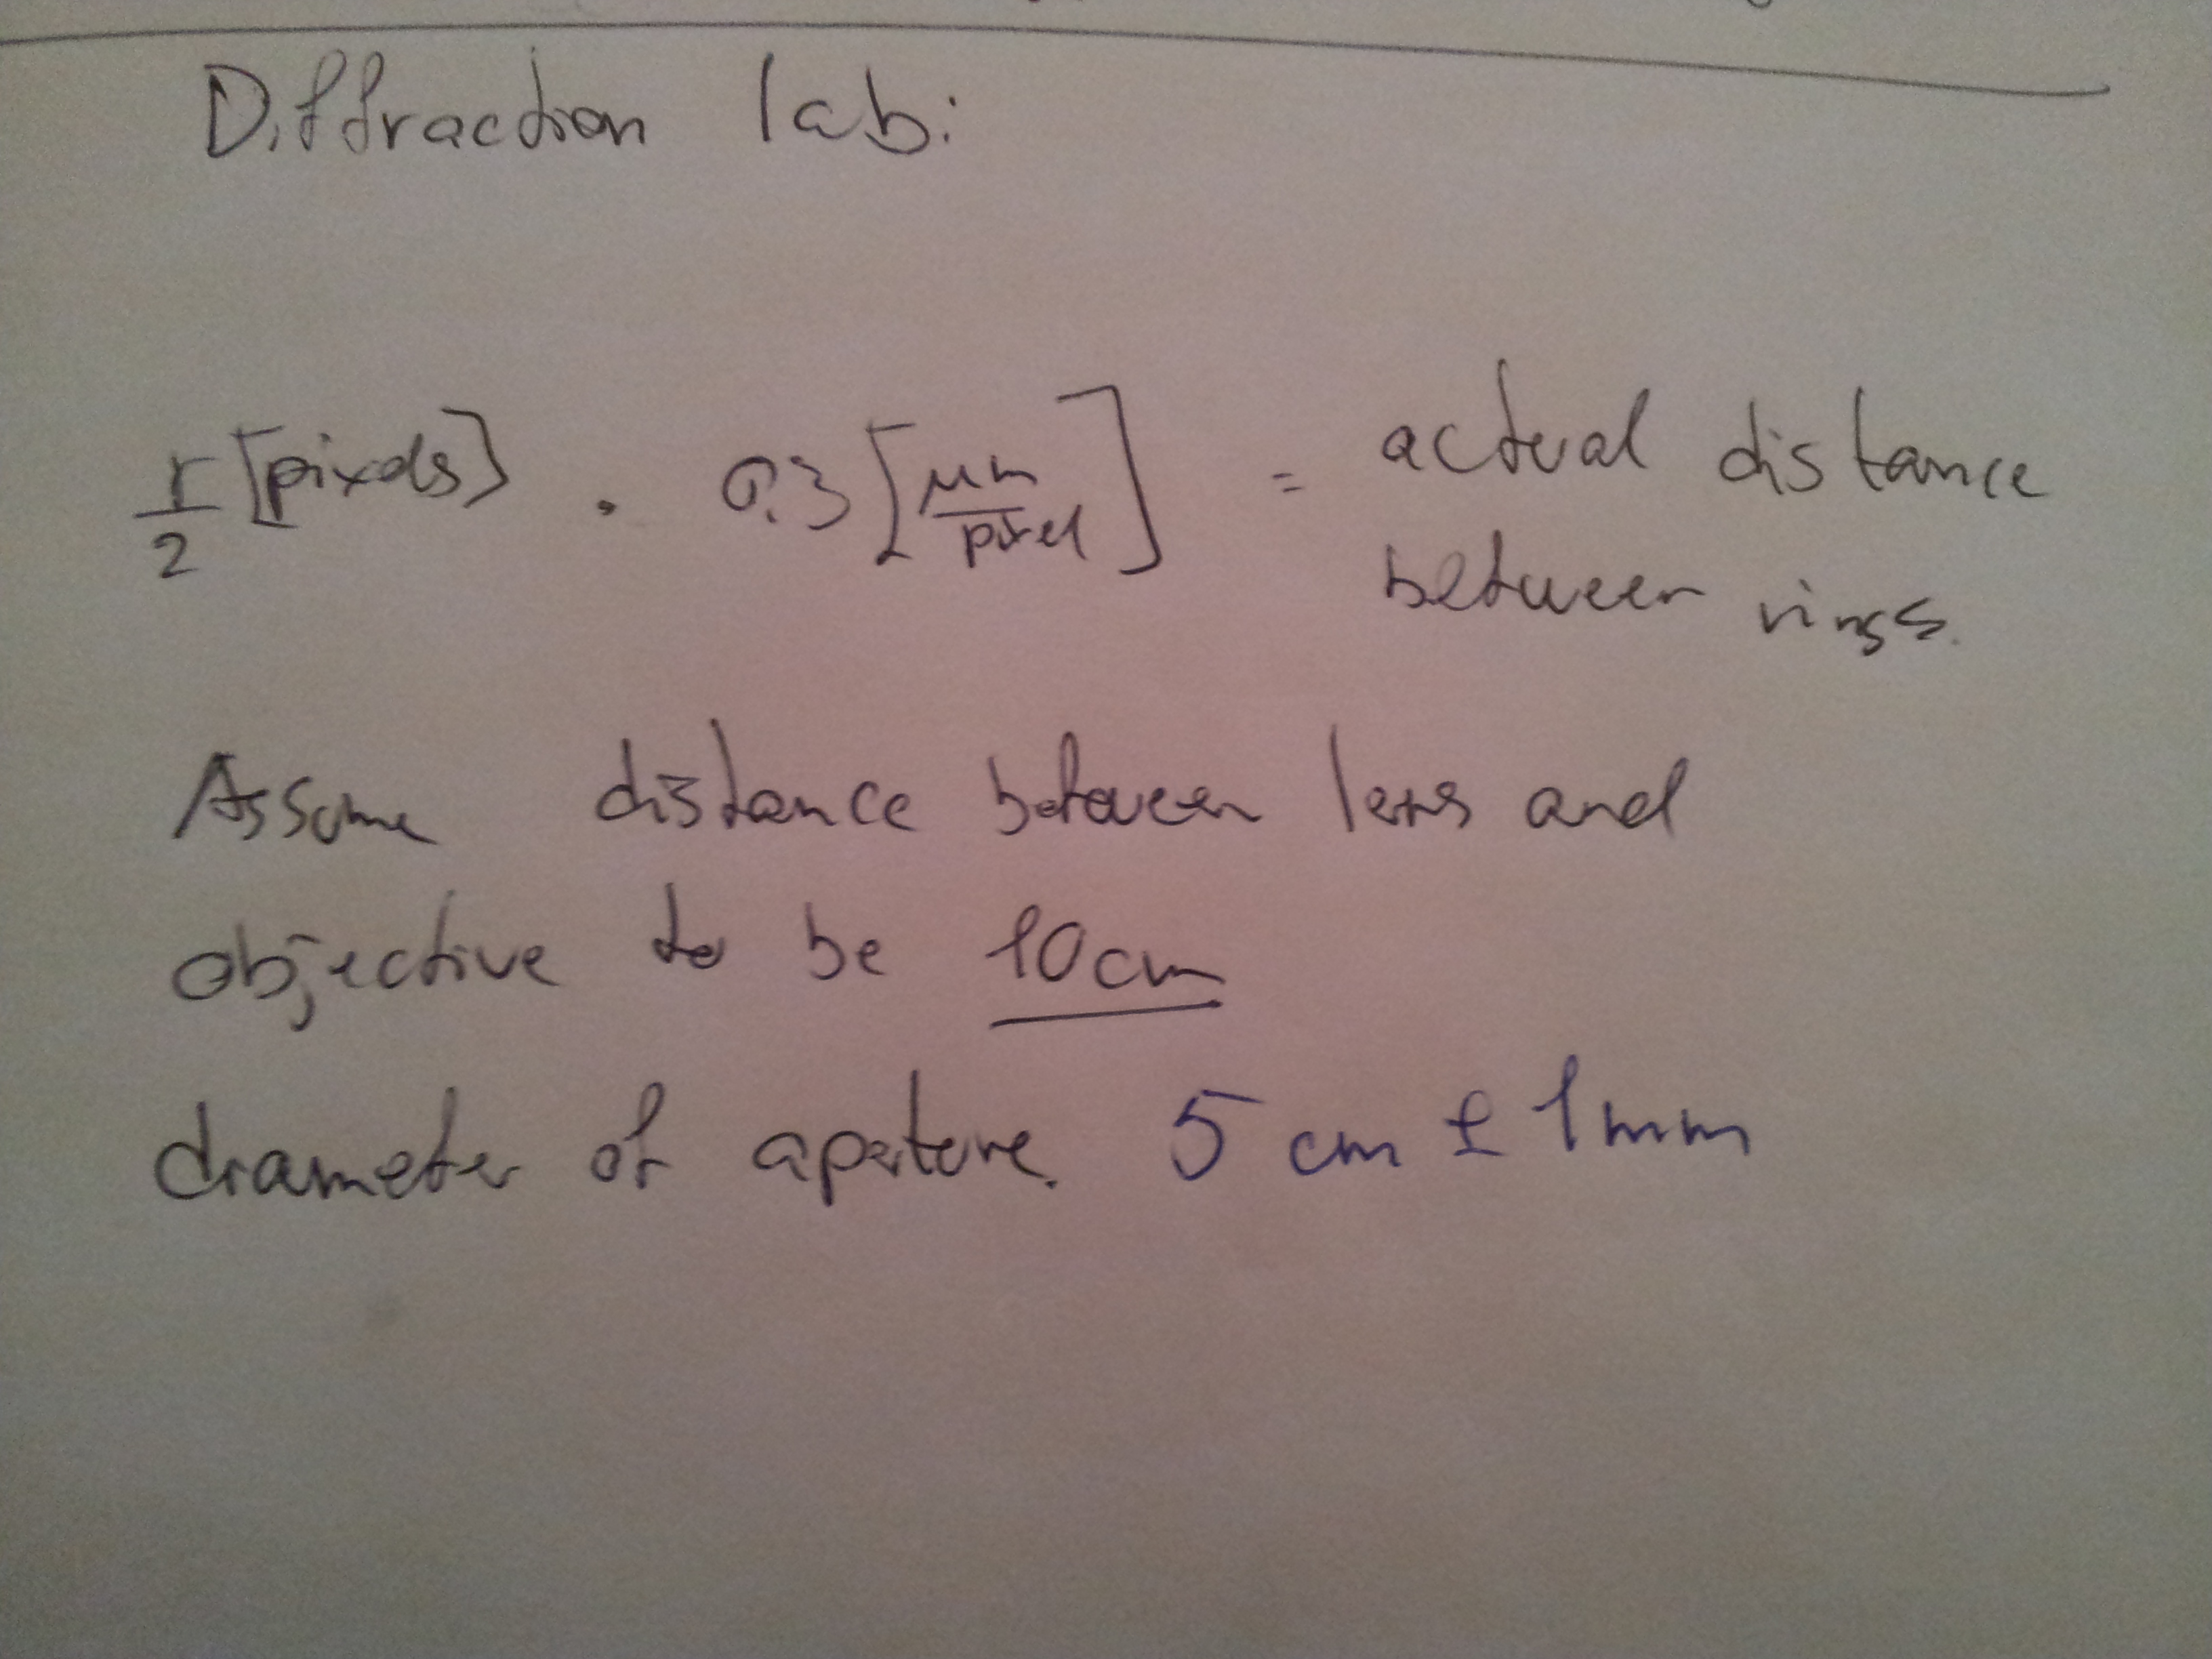 Diffraction lab:
r/2 [pixels] · 0.3 [μm/pixel] = actual distance
between rings.
Assume distance between lens and
objective to be 10cm
diameter of aperture. 5 cm ± 1mm